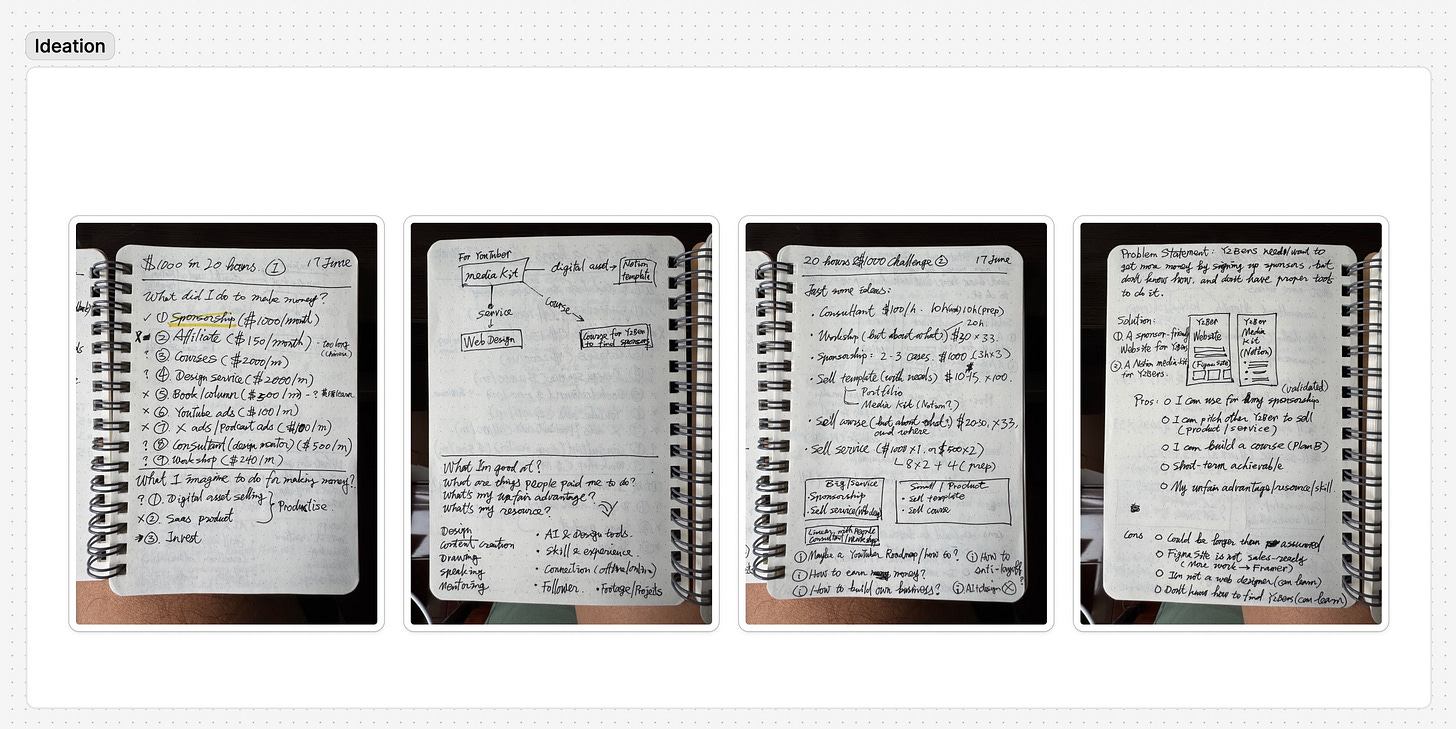 Ideation
$1000 in 20 hours. ① 17 June
What did I do to make money?
✓ ① Sponsorship ($1000/month)
② Affiliate ($150/month) · too long
(Chinese)
? ③ Courses ($2000/m)
? ④. Design service ($2000/m)
× ⑤. Book/column ($500/m) - ?
× ⑥. YouTube ads ($100/m)
× ⑦. X ads/Podcast ads ($100/m)
? ⑧ Consultant (design mentor) ($500/m)
? ⑨ Workshop ($240/m)
What I imagine to do for making money?
? ①. Digital asset selling
Productise.
×②. Saas product
③. Invest
For YouTuber
media Kit
digital asset
Notion
template
service
course
Web Design
Course for Y2Ber
to find sponsors
What I'm good at?
What are things people paid me to do?
What's my unfair advantage?
What's my resource?
Design
Content creation
Drawing
Speaking
Mentoring
• AI & Design tools.
• Skill & experience.
• Connection (offline/online)
• Follower. • Footage/Projects
20 hours $1000 Challenge ② 17 June
Just some ideas:
• Consultant $100/h. 10h 10h(prep)
20h.
• Workshop (but about what?) $30 × 33.
• Sponsorship: 2-3 cases. $1000 (3h×3)
• Sell template (with needs) $10-15 ×100.
Portfolio
Media Kit (Notion?)
• Sell course (but about what?) $20-30, ×33,
and where
• Sell service ($1000×1, or $500×2)
8×2 + 4 (prep)
Big/Service
• Sponsorship
• Sell service
Small / Product
• Sell template
• Sell course
Consultant/workshop
Maybe a YouTuber Roadmap/how to?
How to
anti-layoff?
How to earn money?
How to build own business?
AI+design
Problem Statement: Y2Bers need/want to
get more money by signing up sponsors, but
don't know how, and don't have proper tools
to do it.
Solution:
①. A sponsor-friendly
Website for Y2Bers
②. A Notion media-kit
for Y2Bers.
Y2Ber
Website
(Figma site)
Y2Ber
Media
Kit
(Notion)
(validated)
Pros: ○ I can use for my sponsorship
○ I can pitch other Y2Ber to sell
(product / service)
○ I can build a course (Plan B)
○ Short-term achievable
○ My unfair advantage/resource/skill.
Cons ○ Could be longer than assumed
○ Figma Site is not sales-ready
(More work → Framer)
○ I'm not a web designer (can learn)
○ Don't know how to find Y2Bers (can learn)